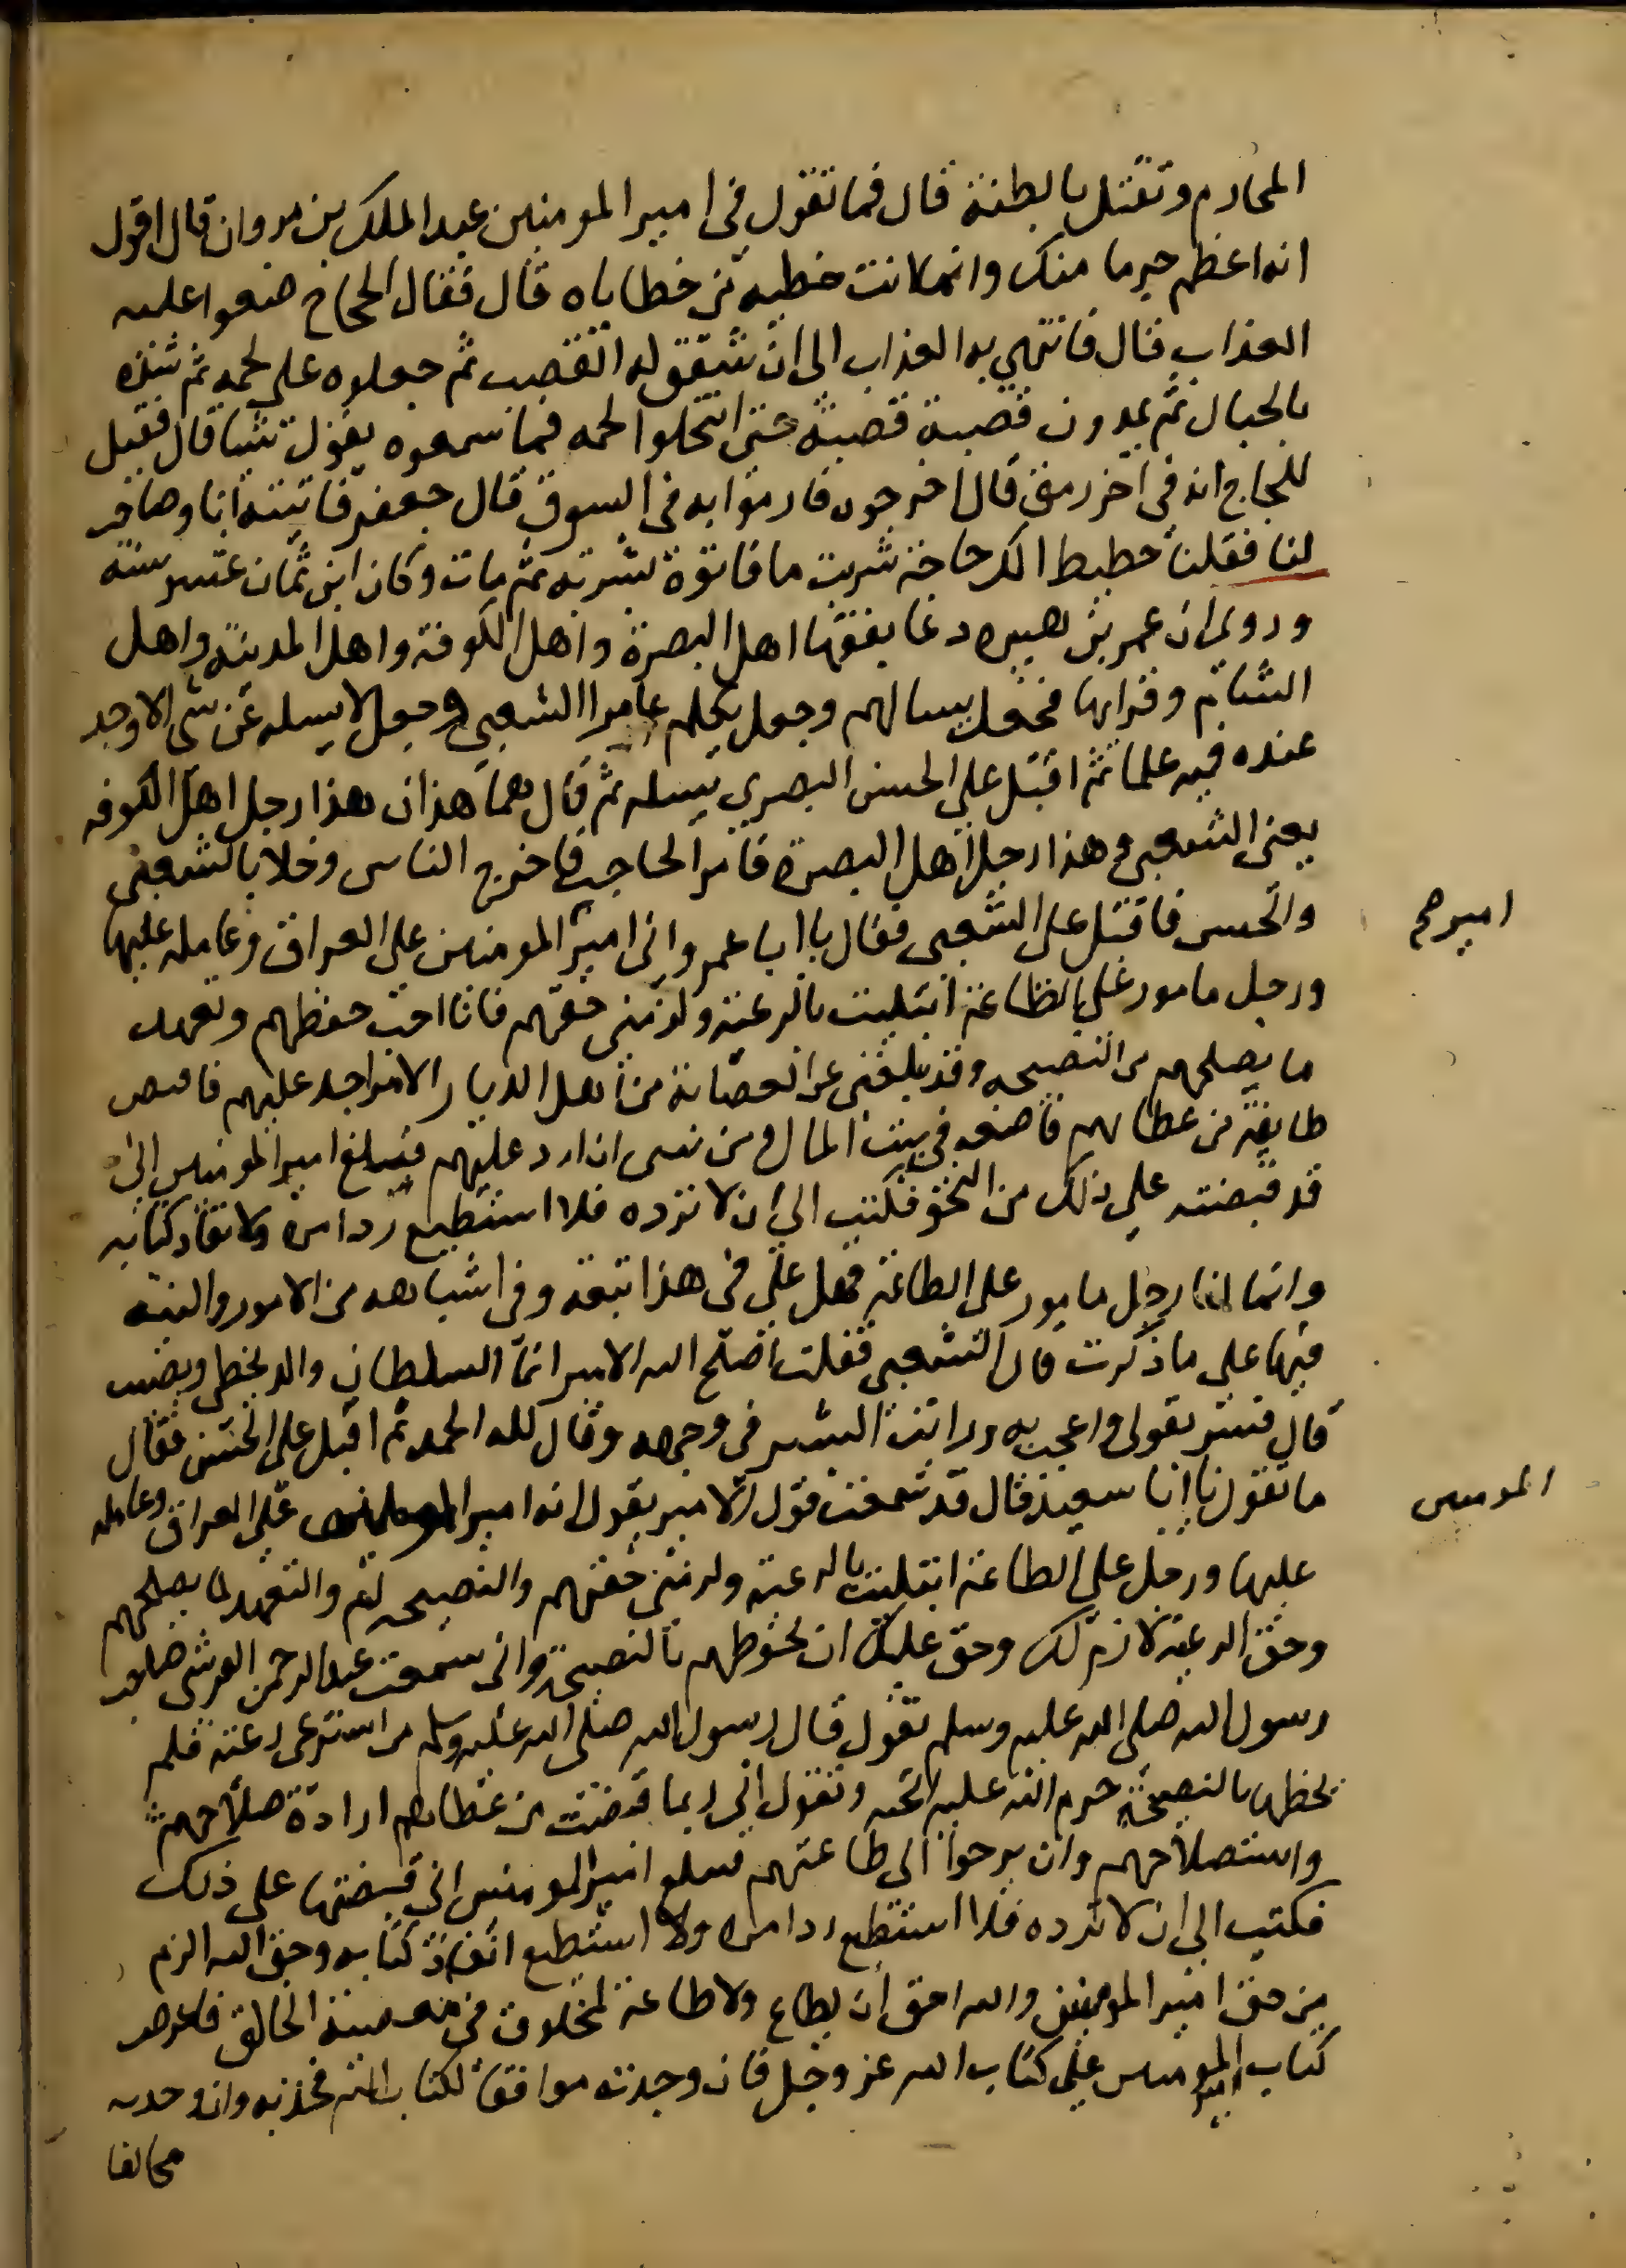 المحارم وتقتل بالظنة قال فما تقول في امير المومنين عبد الملك بن مروان قال اقول
انه اعظم جرما منك وانما كانت خطية من خطاياه قال فقال الحجاج ضعوا عليه
العذاب قال فانتهي به العذاب الى ان شقق له القصب ثم جعلوه على لحمه ثم شدوه
بالحبال ثم يمدون قصبة قصبة حتى انتحلوا لحمه فما سمعوه يقول شيا قال فقيل
للحجاج انه في اخر رمق قال اخرجوه فارموا به في السوق قال جعفر فاتيته انا وصاحب
لنا فقلنا حطيط الك حاجة شربت ما فاتوه بشربة ثم مات وكان ابن ثمان عشر سنة
وروى ان عمر بن هبيره دعا بفقها اهل البصرة واهل الكوفة واهل المدينة واهل
الشام وقرايها فجعل يسالهم وجعل يكلم عامرا الشعبي وجعل لا يسله عن شي الا وجد
عنده فيه علما ثم اقبل على الحسن البصري يسله ثم قال هما هذان هذا رجل اهل الكوفه
يعني الشعبي وهذا رجل اهل البصرة فامر الحاجب فاخرج الناس وخلا بالشعبي
والحسن فاقبل على الشعبي فقال يا ابا عمر واني امير المومنين على العراق وعامله عليها
ورجل مامور على الطاعة ابتليت بالرعية ولزمني حقهم فانا احب حفظهم وتعهد
ما يصلحهم من النصيحه وقد يبلغني عن العصابة من اهل الديار الامر اجد عليهم فاقبض
طايفة من عطايهم فاضعه في بيت المال ومن نيتي ان ارد عليهم فيبلغ امير المومنين اني
قد قبضته على ذلك من النحو فكتب الي ان لا ترده فلا استطيع رد امره ولا نفاد كتابه
وانما انا رجل مامور على الطاعة فهل علي في هذا تبعة وفي اشباهه من الامور والنية
فيها على ما ذكرت قال الشعبي فقلت اصلح الله الامير انما السلطان والد يخطي ويصيب
قال فسر بقولي واعجب به ورايت البشر في وجهه وقال لله الحمد ثم اقبل على الحسن فقال
ما تقول يا ابا سعيد قال قد سمعت قول الامير يقول انه امير المومنين على العراق وعامله
عليها ورجل على الطاعة ابتليت بالرعية ولزمني حقهم والنصيحه لهم والتعهد لما يصلحهم
وحق الرعية لازم لك وحق عليك ان تحوطهم بالنصيحة واني سمعت عبد الرحمن القرشي صاحب
رسول الله صلى الله عليه وسلم يقول قال رسول الله صلى الله عليه وسلم من استرعى رعية فلم
يحطها بالنصيحة حرم الله عليه الجنه وتقول اني ربما قبضت من عطايهم ارادة صلاحهم
واستصلاحهم وان يرجوا الى طاعتهم فيبلغ امير المومنين اني قبضتها على ذلك
فكتب الي ان لا ترده فلا استطيع رد امره ولا استطيع انفاذ كتابه وحق الله الزم
من حق امير المومنين والله احق ان يطاع ولا طاعة لمخلوق في معصية الخالق فاعرض
كتاب امير المومنين على كتاب الله عز وجل فان وجدته موافقا لكتاب الله فخذ به وان وجدته
مخالفا
امير صح
المومنين